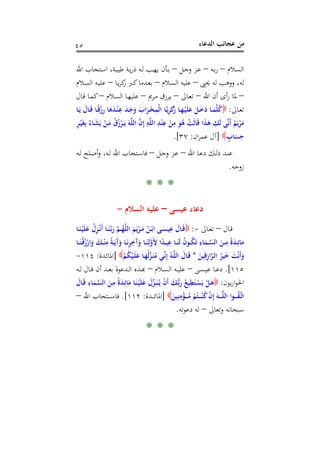 من عجائب الدعاء
٤٥
السلام – ربه – عز وجل – بأن يهب له ذرية طيبة، استجاب الله
له، ووهب له يحيى – عليه السلام – بعدما كبر زكريا – عليه السلام
– لما رأى أن الله – تعالى – يرزق مريم – عليها السلام – كما قال
تعالى: ﴿كُلَّمَا دَخَلَ عَلَيْهَا زَكَرِيَّا الْمِحْرَابَ وَجَدَ عِنْدَهَا رِزْقًا قَالَ يَا
مَرْيَمُ أَنَّى لَكِ هَذَا قَالَتْ هُوَ مِنْ عِنْدِ اللَّهِ إِنَّ اللَّهَ يَرْزُقُ مَنْ يَشَاءُ بِغَيْرِ
حِسَابٍ﴾ [آل عمران: ٣٧].
عند ذلك دعا الله – عز وجل – فاستجاب الله له، وأصلح له
زوجه.
* * *
دعاء عيسى – عليه السلام –
قال – تعالى -: ﴿قَالَ عِيسَى ابْنُ مَرْيَمَ اللَّهُمَّ رَبَّنَا أَنْزِلْ عَلَيْنَا
مَائِدَةً مِنَ السَّمَاءِ تَكُونُ لَنَا عِيدًا لِأَوَّلِنَا وَآَخِرِنَا وَآَيَةً مِنْكَ وَارْزُقْنَا
وَأَنْتَ خَيْرُ الرَّازِقِينَ * قَالَ اللَّهُ إِنِّي مُنَزِّلُهَا عَلَيْكُمْ﴾ [المائدة: ١١٤-
١١٥]. دعا عيسى – عليه السلام – بهذه الدعوة بعد أن قال له
الحواريون: ﴿هَلْ يَسْتَطِيعُ رَبُّكَ أَنْ يُنَزِّلَ عَلَيْنَا مَائِدَةً مِنَ السَّمَاءِ قَالَ
اتَّقُوا اللَّهَ إِنْ كُنْتُمْ مُؤْمِنِينَ﴾ [المائدة: ١١٢]. فاستجاب الله –
سبحانه وتعالى – له دعوته.
* * *